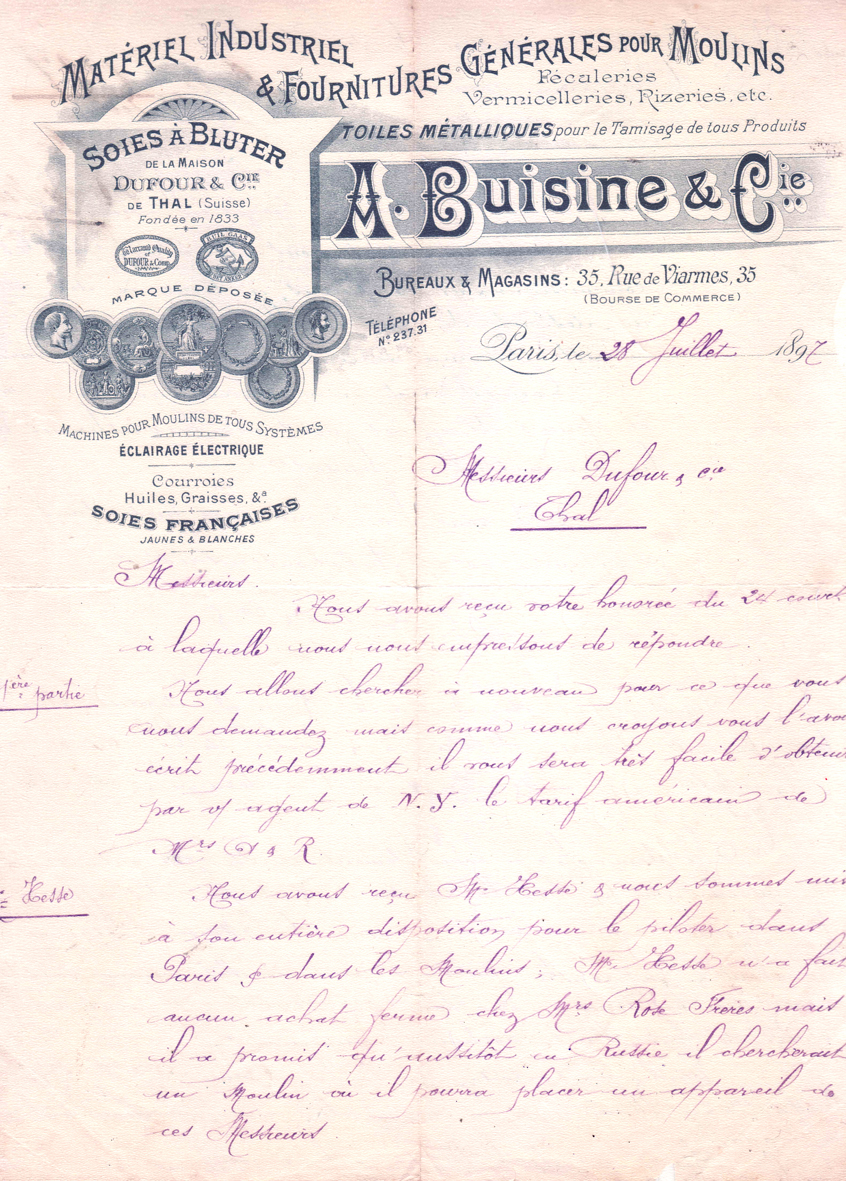 MATÉRIEL INDUSTRIEL
& FOURNITURES GÉNÉRALES POUR MOULINS
Féculeries
Vermicelleries, Rizeries, etc.
TOILES MÉTALLIQUES pour le Tamisage de tous Produits
A. Buisine & Cie
BUREAUX & MAGASINS: 35, Rue de Viarmes, 35
(BOURSE DE COMMERCE)
TÉLÉPHONE
No 237.31
SOIES À BLUTER
DE LA MAISON
DUFOUR & CIE
DE THAL (Suisse)
Fondée en 1833
DUFOUR & Comp.
MARQUE DÉPOSÉE
MACHINES POUR MOULINS DE TOUS SYSTÈMES
ÉCLAIRAGE ÉLECTRIQUE
Courroies
Huiles, Graisses, &a
SOIES FRANÇAISES
JAUNES & BLANCHES
Paris, le 28 Juillet 1897
Messieurs Dufour & cie
Thal
Messieurs.
Nous avons reçu votre honorée du 24 court
à laquelle nous nous empressons de répondre.
1ère partie
Nous allons chercher à nouveau pour ce que vous
nous demandez mais comme nous croyons vous l'avoir
écrit précédemment il vous sera très facile d'obtenir
par v/ agent de N.Y. le tarif américain de
Mrs & R.
Hesse
Nous avons reçu Mr Hesse & nous sommes mis
à son entière disposition pour le piloter dans
Paris & dans les Moulins; Mr Hesse n'a fait
aucun achat ferme chez Mrs Rose Frères mais
il a promis qu'aussitôt en Russie il chercherait
un Moulin où il pourra placer un appareil de
ces Messieurs.